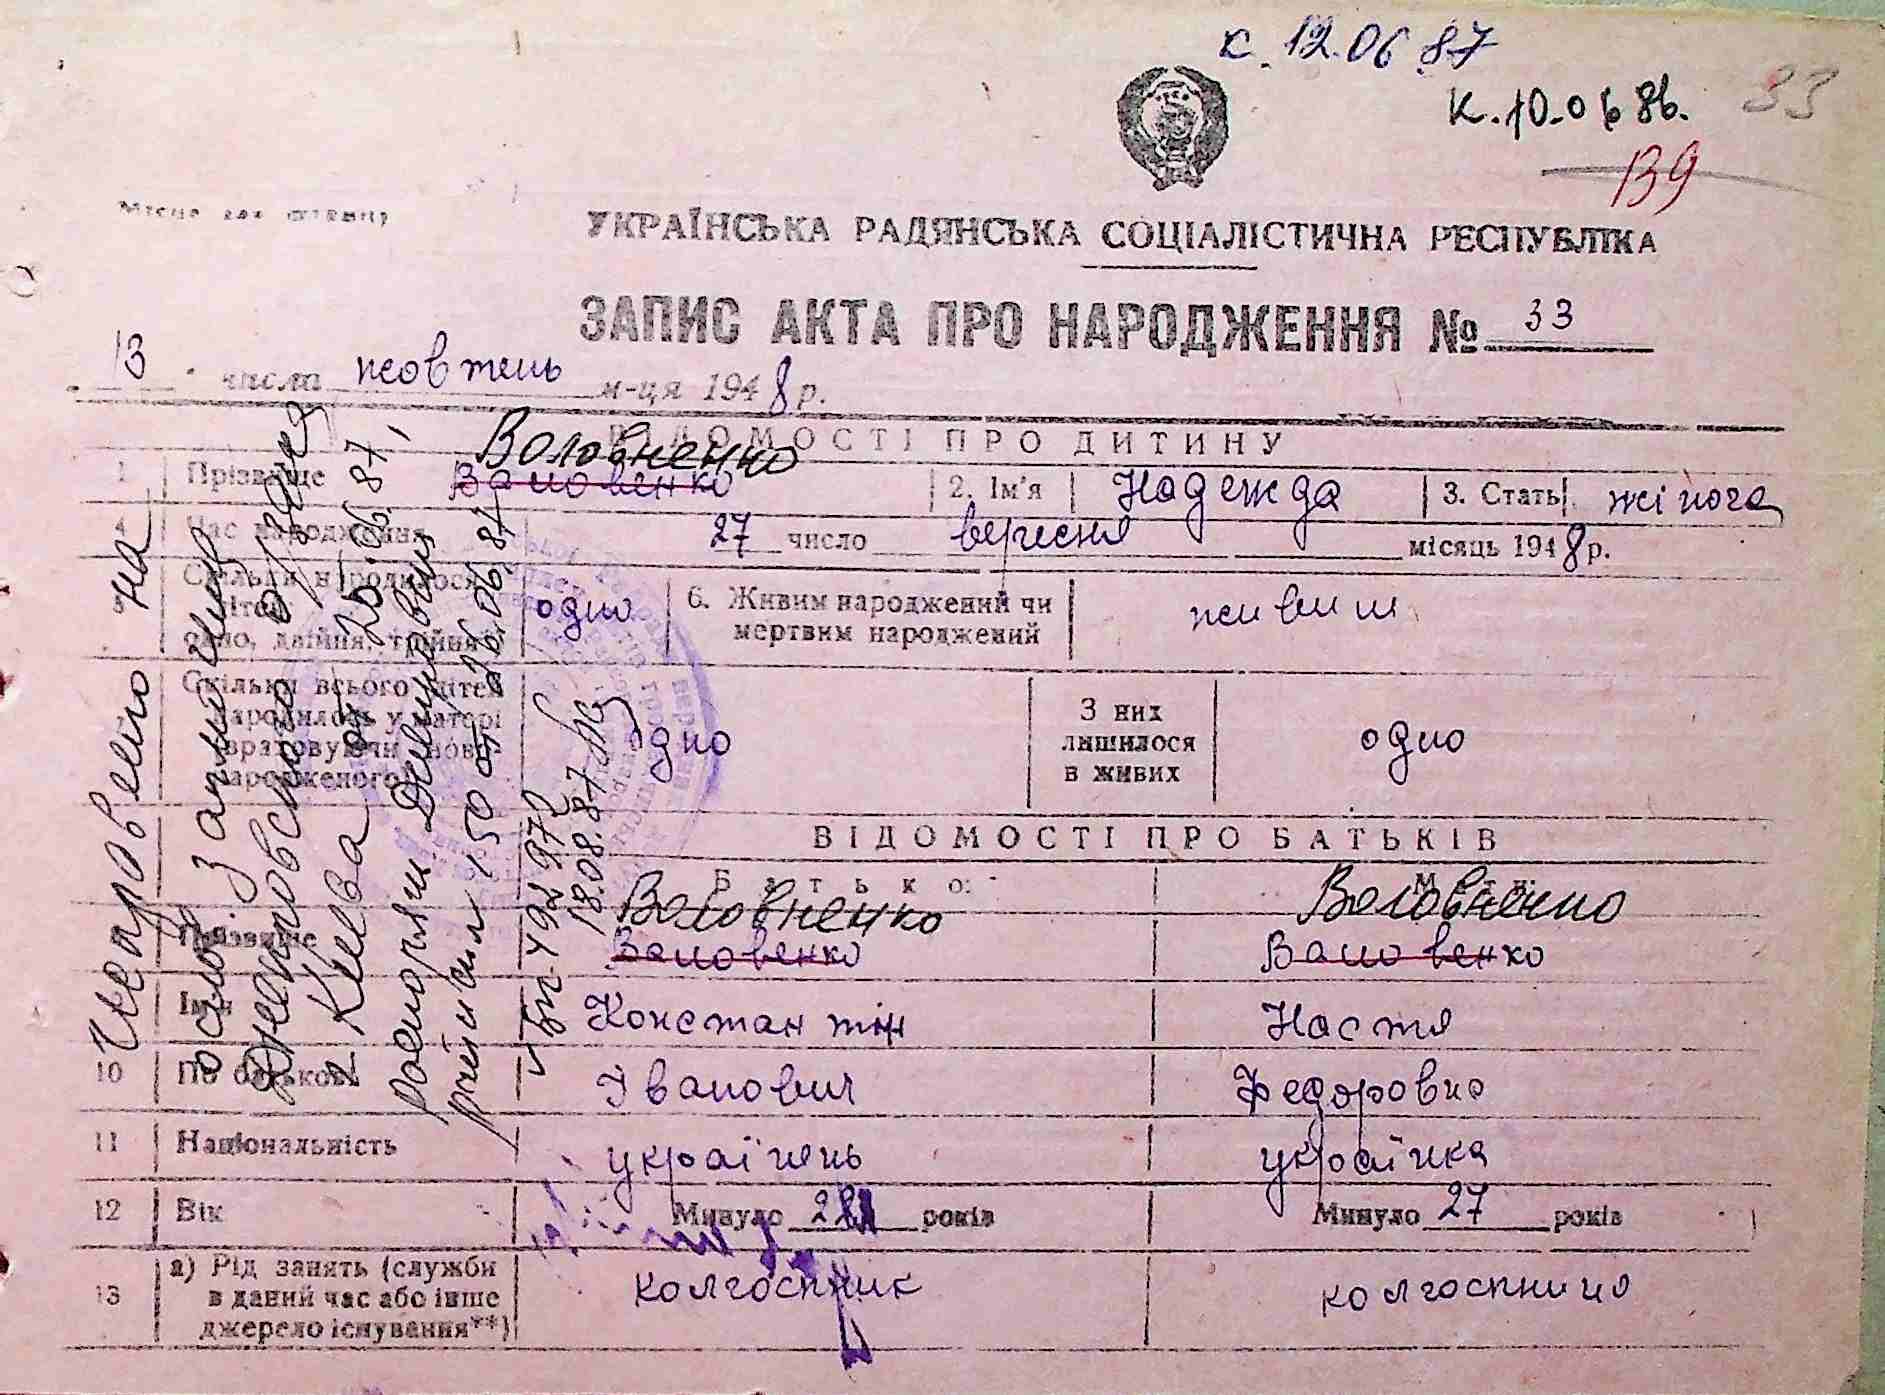 к. 12.06.87
к. 10.06 86.
33
139
Місце для штампу
УКРАЇНСЬКА РАДЯНСЬКА СОЦІАЛІСТИЧНА РЕСПУБЛІКА
ЗАПИС АКТА ПРО НАРОДЖЕННЯ № 33
13 числа жовтень м-ця 1948 р.
ВІДОМОСТІ ПРО ДИТИНУ
Воловненко
1 Прізвище Валовенко 2. Ім'я Надежда 3. Стать жіноча
4 Час народження 27 число вересня місяць 1948 р.
5 Скільки народилося дітей одно, двійня, трійня одно 6. Живим народжений чи мертвим народжений живим
Скільки всього дітей народилось у матері враховуючи ново-народженого одно З них лишилося в живих одно
ВІДОМОСТІ ПРО БАТЬКІВ
Батько: Мати:
Воловненко Воловненко
Прізвище Валовенко Валовенко
Ім'я Константін Настя
10 По батькові Іванович Федоровна
11 Національність українець українка
12 Вік Минуло років Минуло 27 років
13 а) Рід занять (служби в даний час або інше джерело існування**) колгоспник колгоспниця
Исправлено на
основ. Заключ
Днепровского р/загса
г Киева от 25.06.87,
150 от 26.06.87
492972
18.08.87